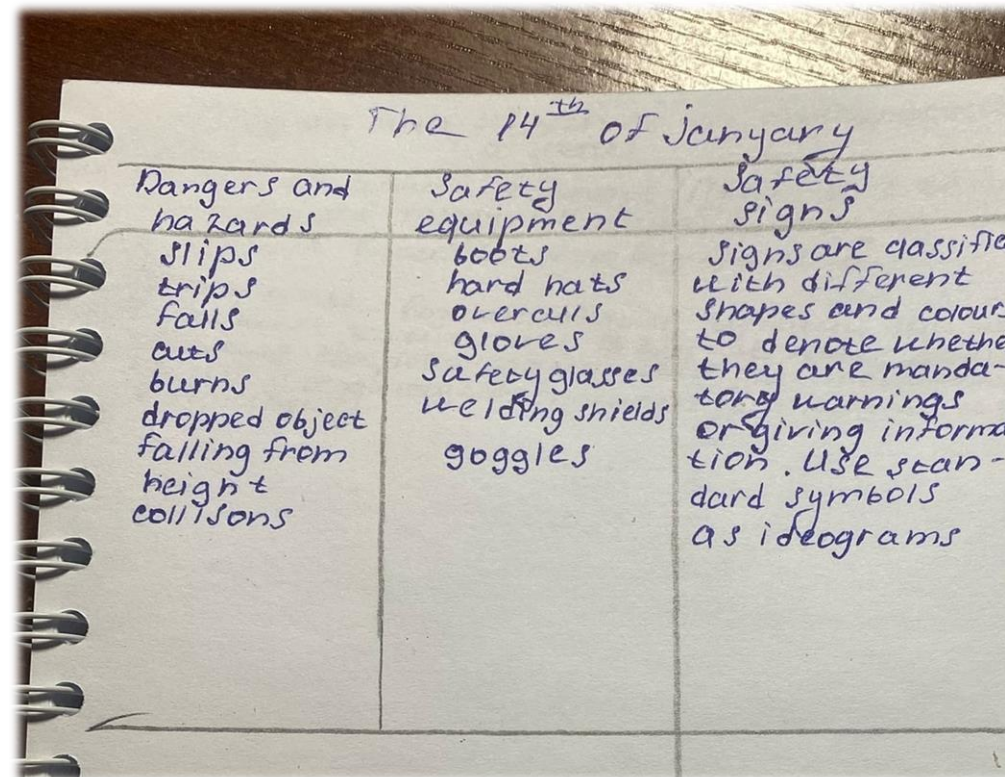 The 14th of janyary
Dangers and
hazards
slips
trips
falls
cuts
burns
dropped object
falling from
height
collisons
Safety
equipment
boots
hard hats
overalls
gloves
Safety glasses
welding shields
goggles
Safety
signs
signs are classifie
with different
shapes and colour
to denote whethe
they are manda-
tory warnings
or giving informa
tion. Use stan-
dard symbols
as ideograms